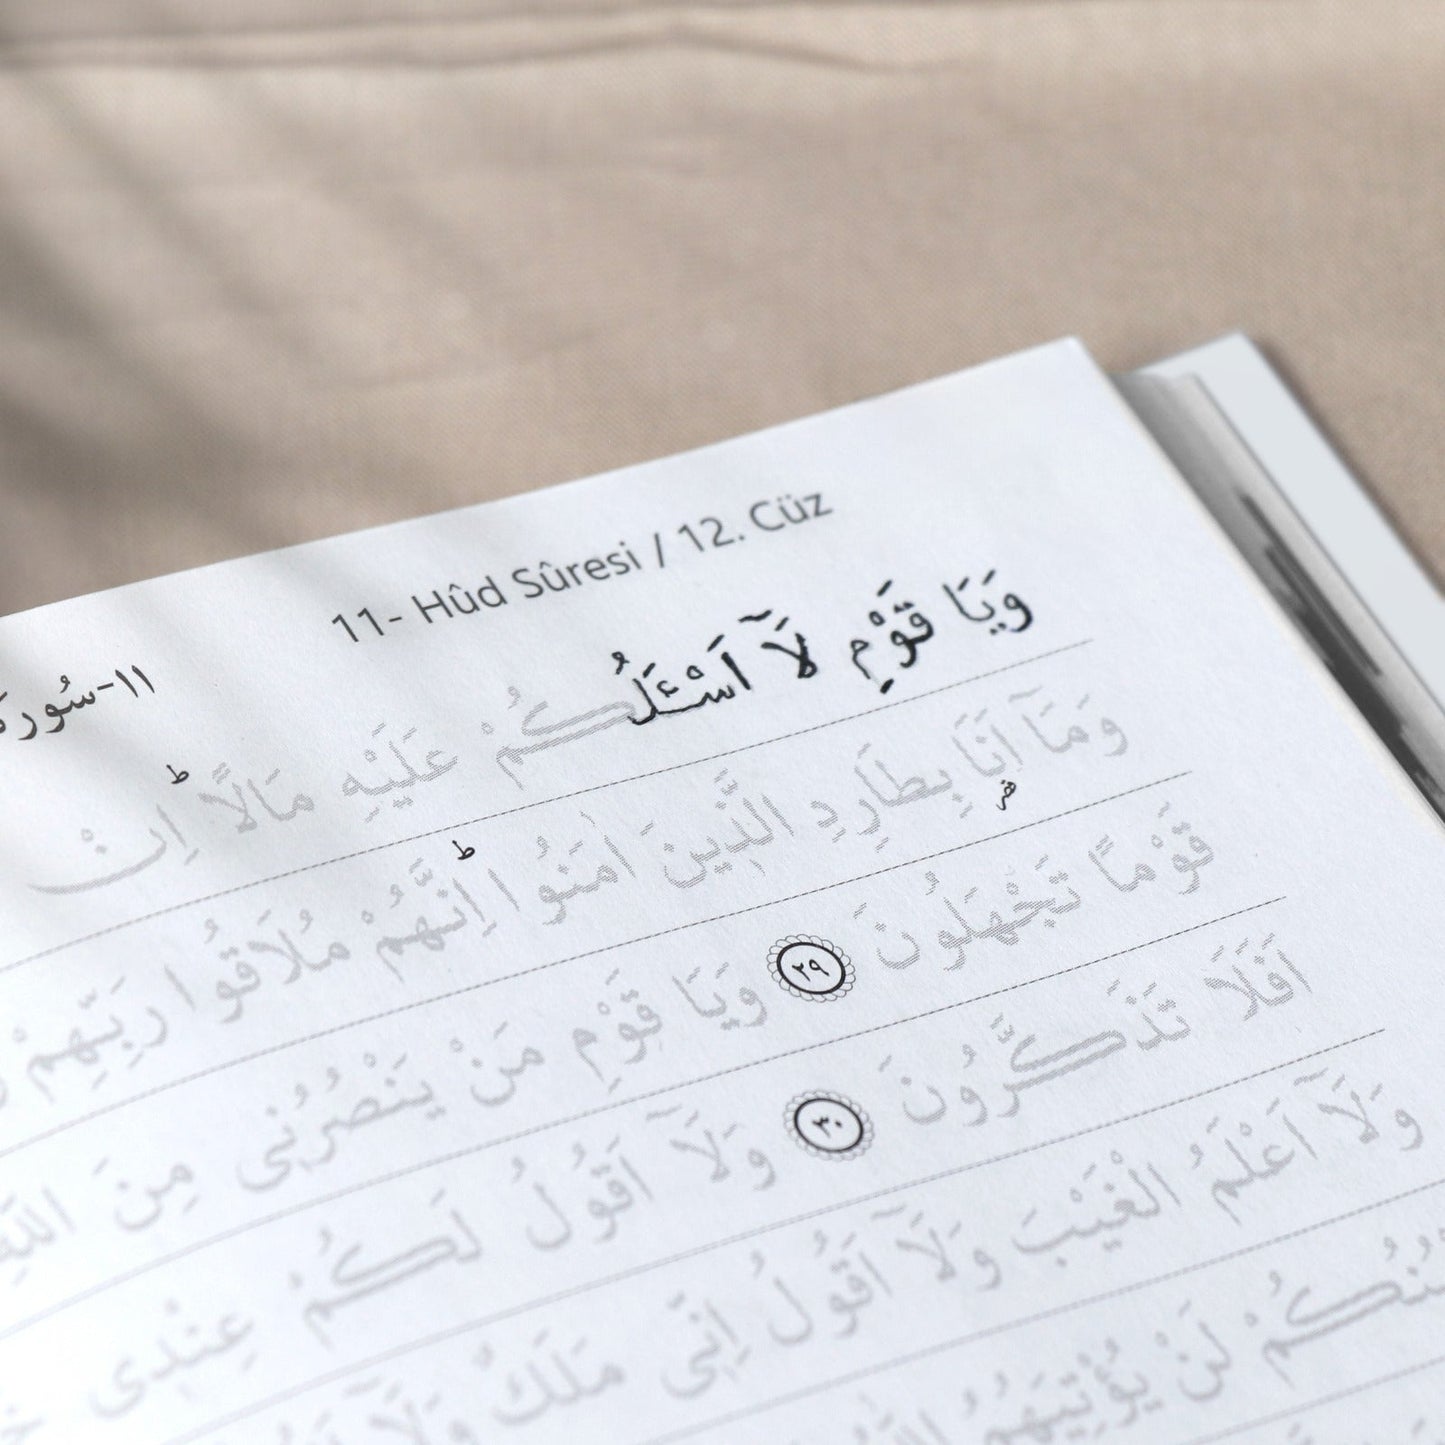 11- Hûd Sûresi / 12. Cüz
١١-سُورَة
وَيَا قَوْمِ لَٓا اَسْـَٔلُكُمْ عَلَيْهِ مَالًاۜ اِنْ
وَمَٓا اَنَا۬ بِطَارِدِ الَّذ۪ينَ اٰمَنُواۜ اِنَّهُمْ مُلَاقُوا رَبِّهِمْ
قَوْمًا تَجْهَلُونَ ٢٩ وَيَا قَوْمِ مَنْ يَنْصُرُن۪ي مِنَ اللّٰهِ
اَفَلَا تَذَكَّرُونَ ٣٠ وَلَٓا اَقُولُ لَكُمْ عِنْد۪ي
وَلَٓا اَعْلَمُ الْغَيْبَ وَلَٓا اَقُولُ اِنّ۪ي مَلَكٌ وَلَٓا
لَنْ يُؤْتِيَهُمُ